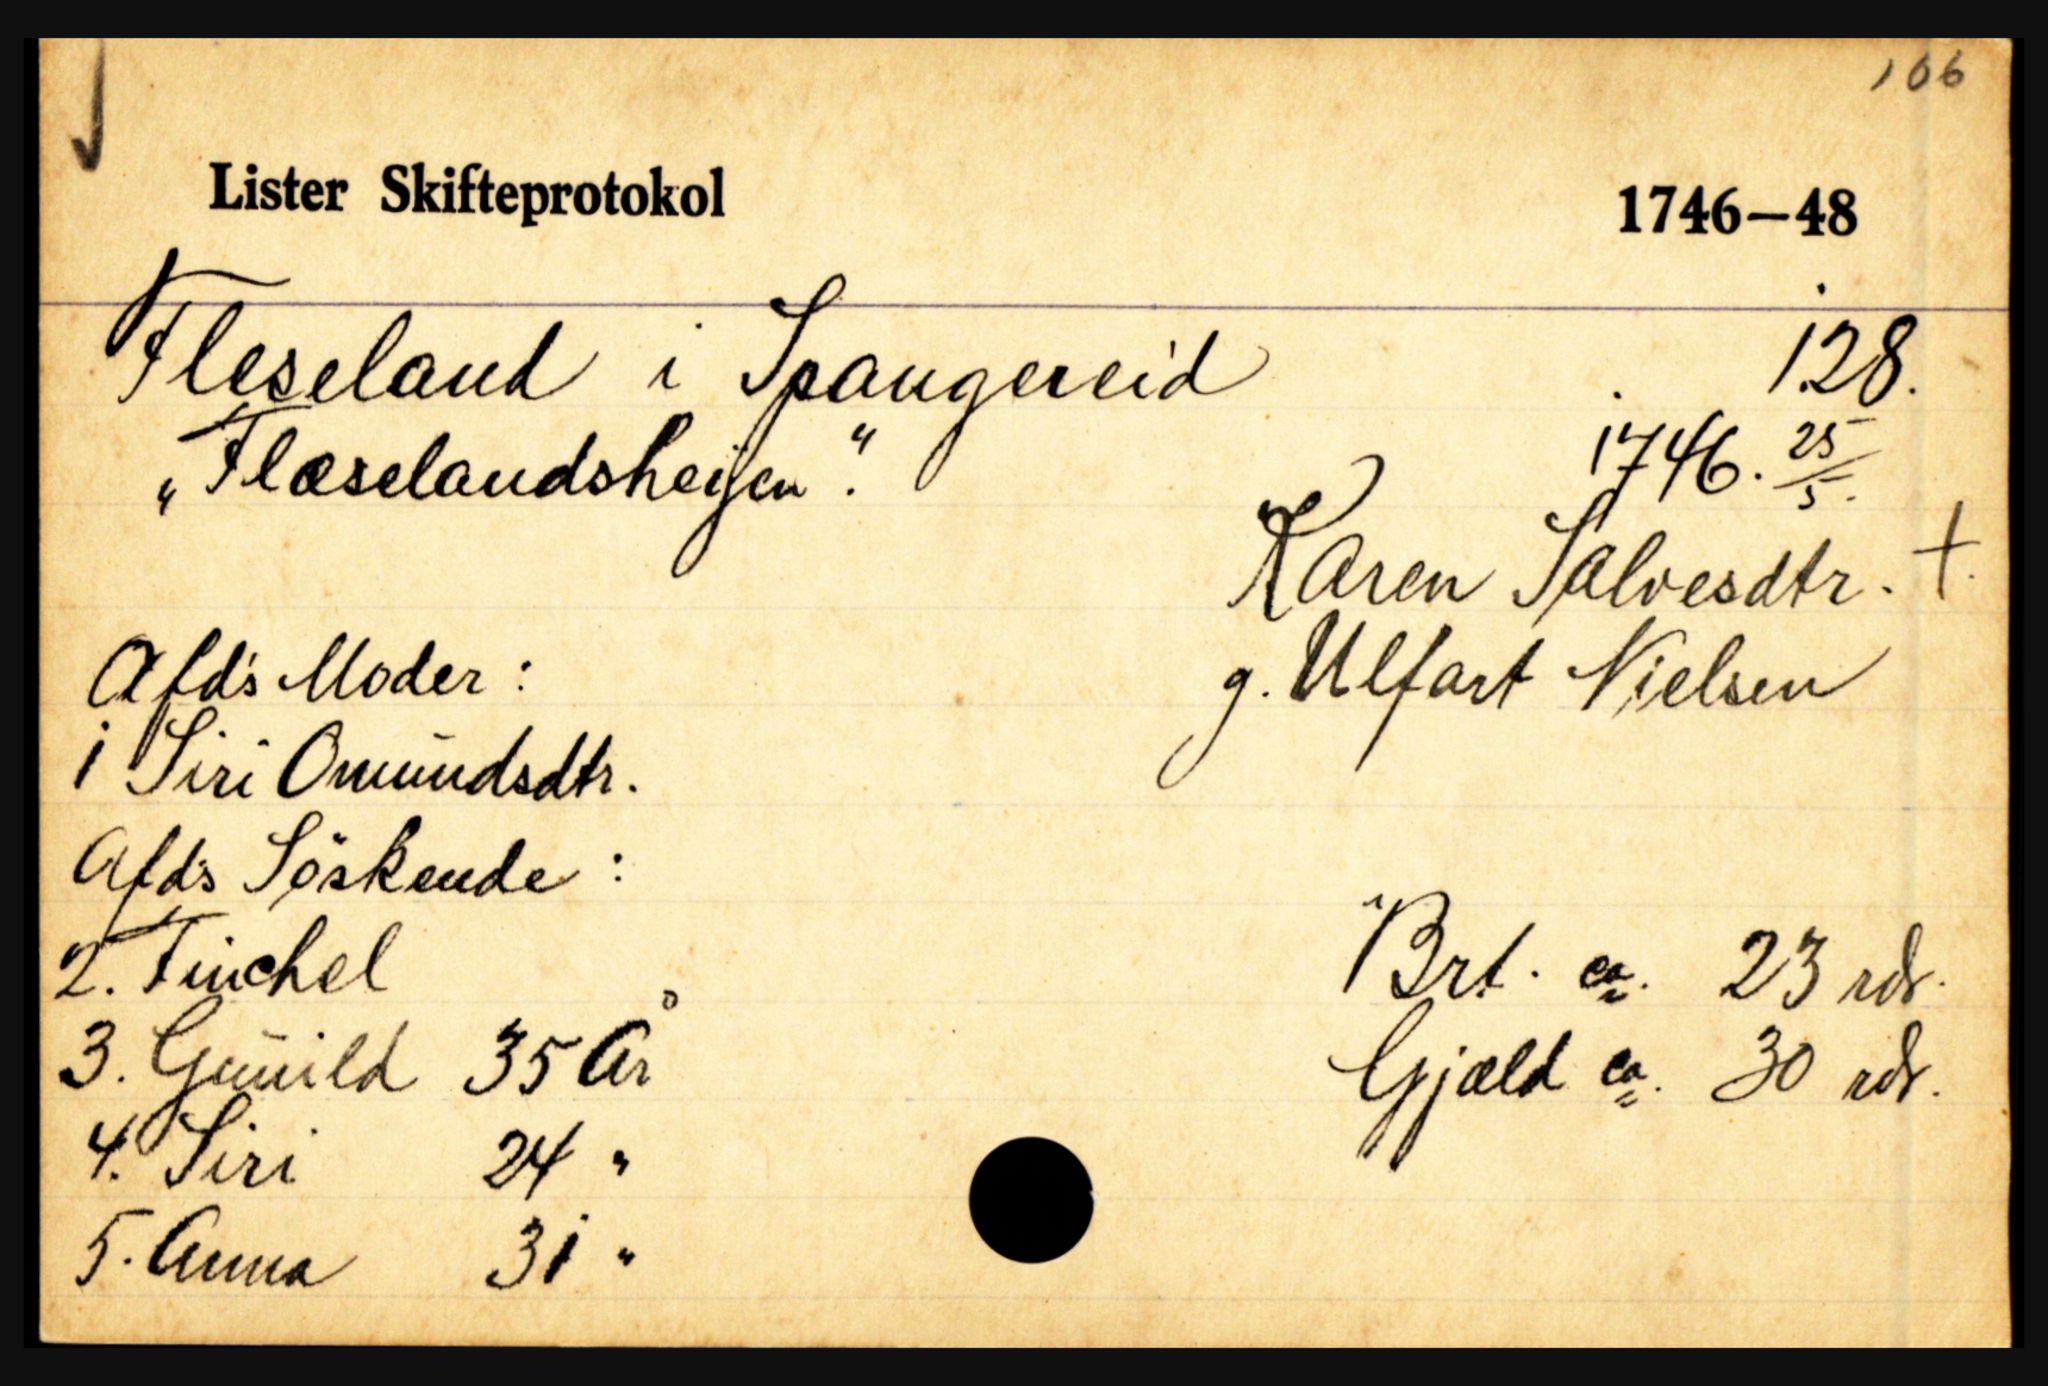 106
Lister Skifteprotokol 1746—48
Fleseland i Spangereid 128.
„Flæselandsheijen“. 1746. 25/5.
Karen Salvesdtr. +
g. Ulfart Nielsen
Afd's Moder:
1 Siri Omundsdtr.
Afds Söskende:
2. Finchel
3. Gunild 35 År
4. Siri 24 "
5. Anna 31 "
Brt. ca. 23 rdr.
Gjæld ca. 30 rdr.